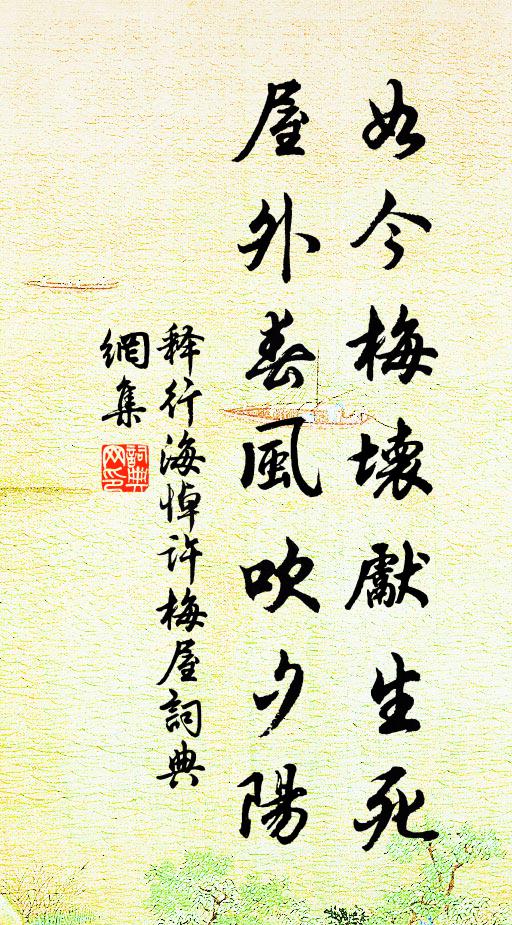 如今梅壞獻生死
屋外春風吹夕陽
释行海悼许梅屋詞典
網集
詞典
网印